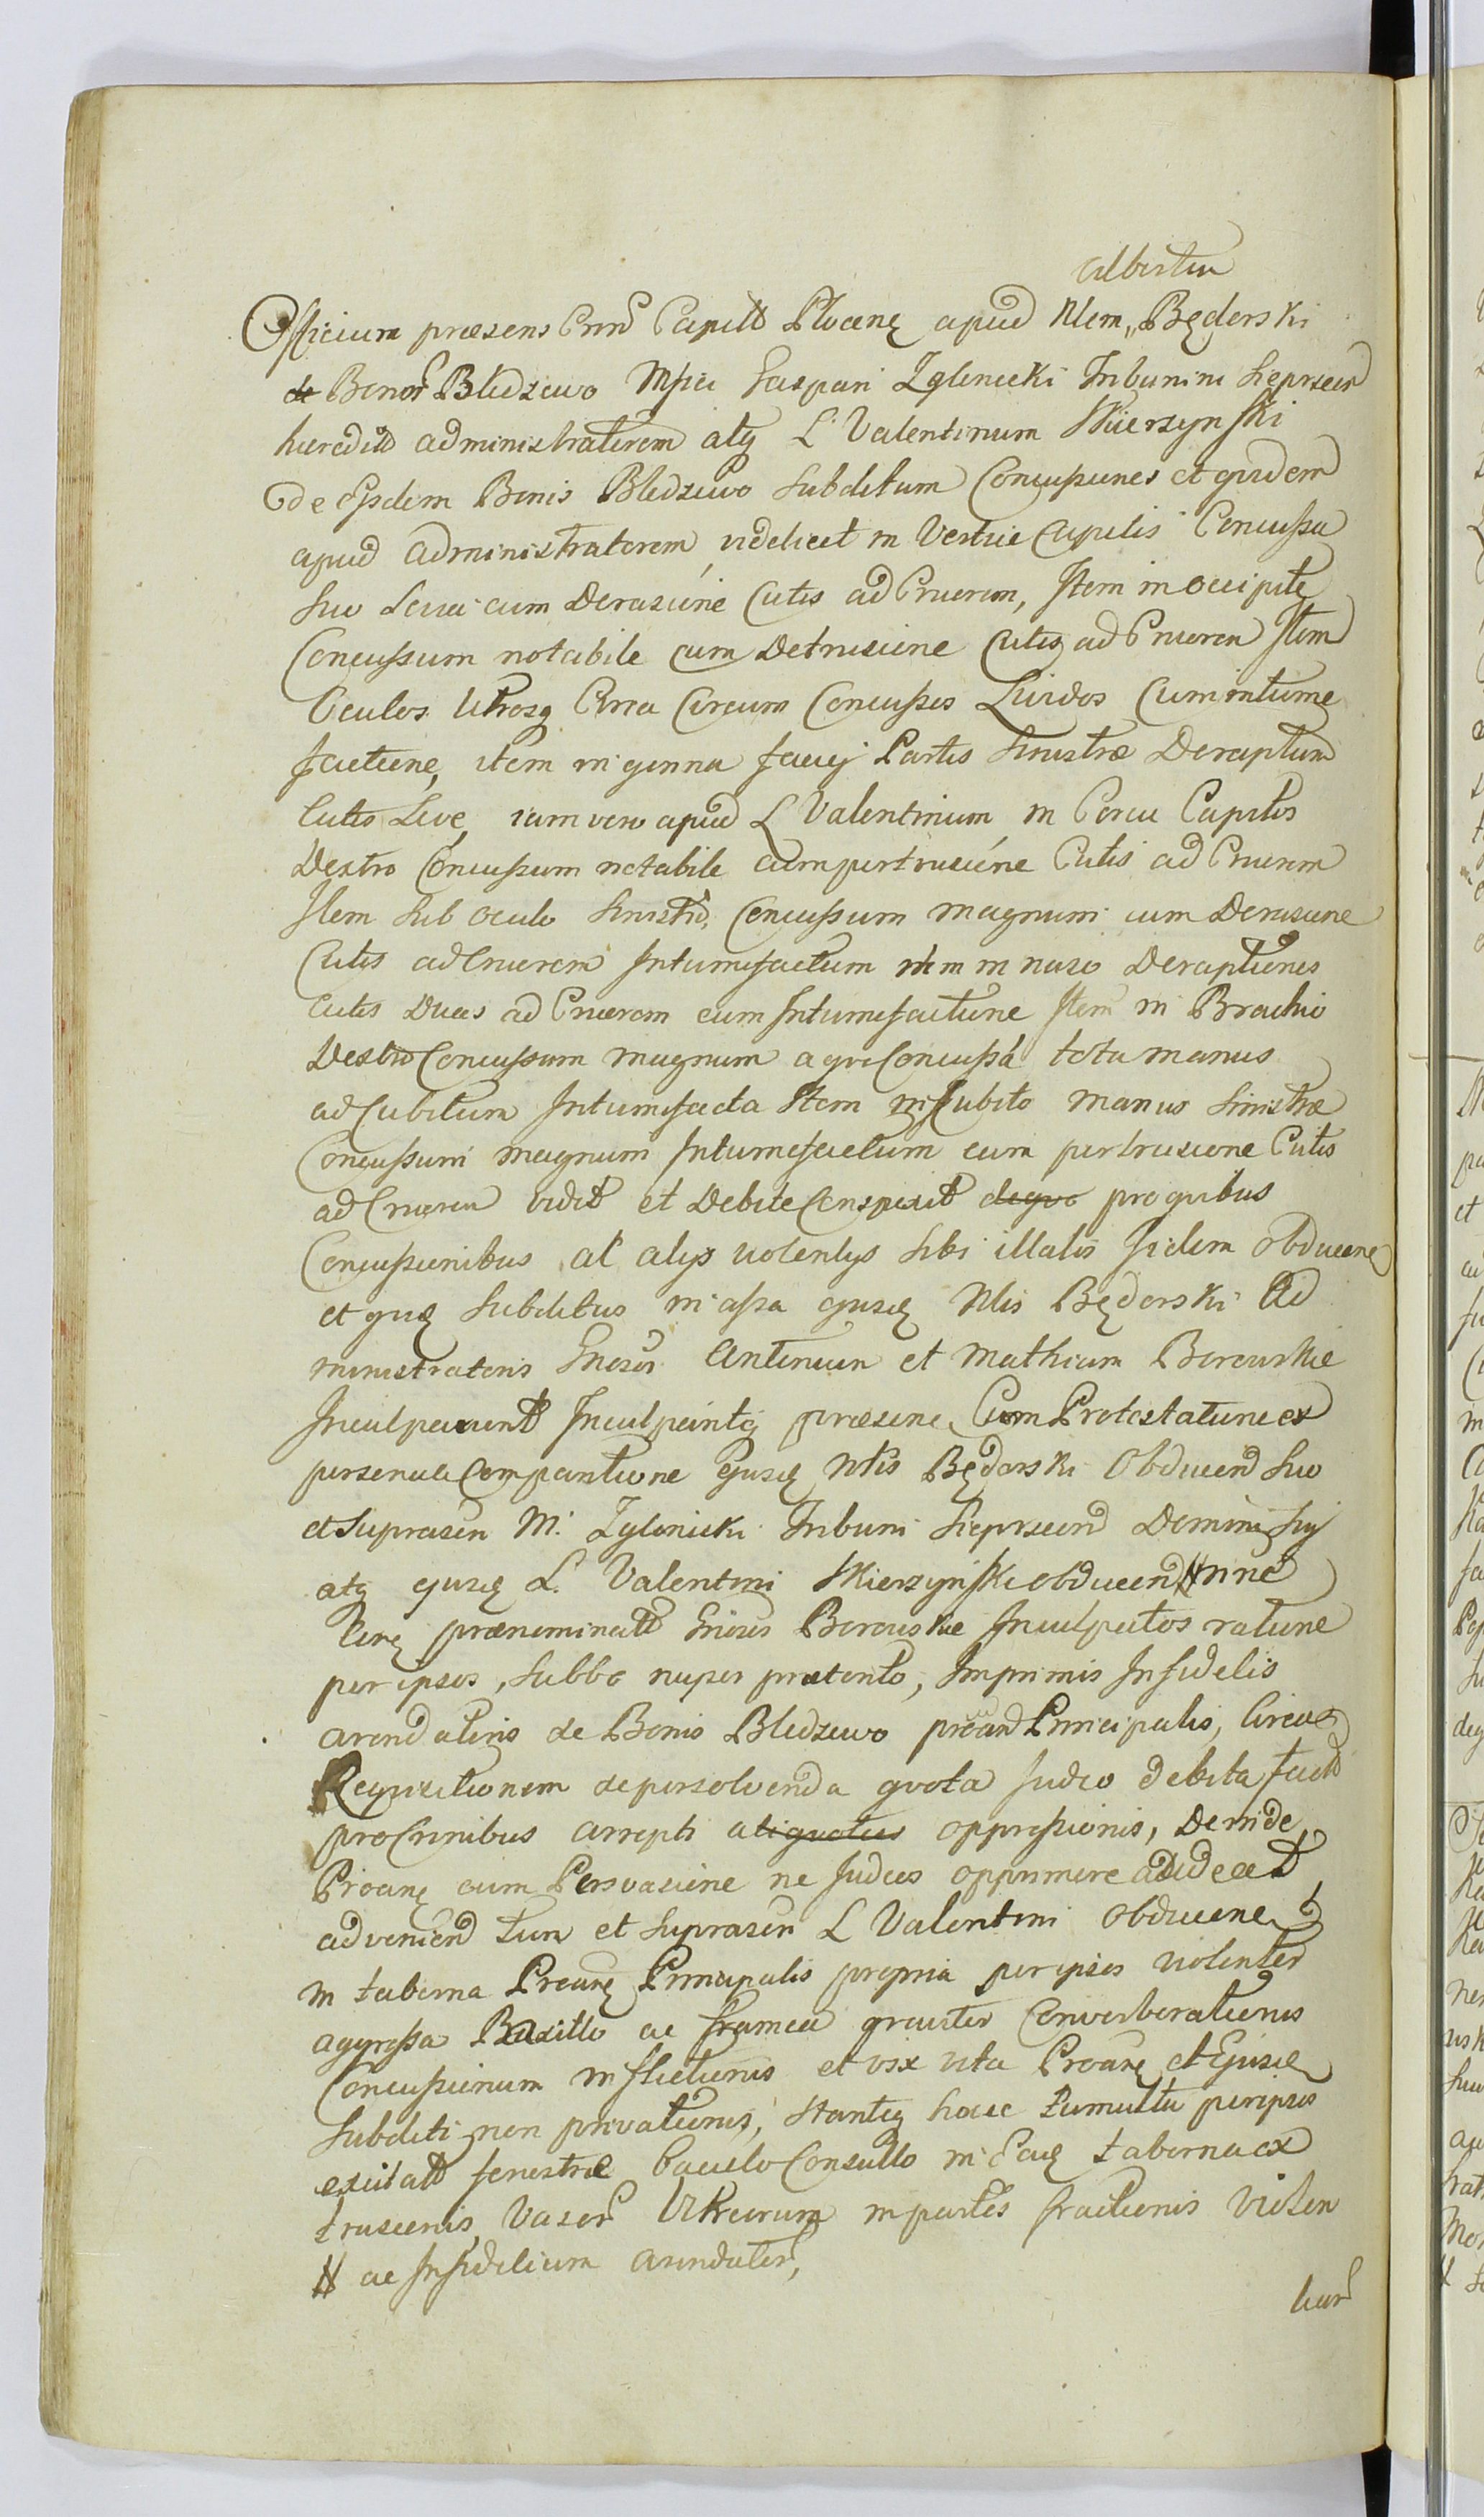 Albertum
Officium præsens Cnne Capitt Plocenę apud Nlem, Będerski
de Bonor Bledzewo Mfici Gaspari Zglenicki Tribuni Sieprcens
hæredit administratorem atq L. Valentinum Skierzynski
de Eisdem Bonis Bledzewo Subditum Concussiones et quidem
apud administratorem, videlicet in Vertice Capitis Concussa
duo Levia cum Derasione Cutis ad Cruorem, Item in occipite
Concussum notabile cum Detrusione Cutis ad Cruorem Item
Oculos Utrosq Circa Circum Concussos Lividos Cum intume
factione, item in genna faciei Partis Sinistræ Deraptum
Cutis Leve, iam vero apud L Valentinum in Cornu Capitis
Dextro Concussum notabile cum pertrusione Cutis ad Cruorem
Item Sub oculo Sinistro, Concussum magnum cum Derasione
Cutis ad Cruorem Intumefactum item in naso Deraptiones
Cutis Duas ad Cruorem cum Intumefactione Item in Brachio
Dextro Concussum magnum a quo Concussa tota manus
ad Cubitum Intumefacta Item in Cubito manus Sinistræ
Concussum magnum Intumefactum cum pertrusione Cutis
ad Cruorem vidit et Debite Conspexit de quo pro quibus
Concussionibus ac alijs violentijs Sibi illatis Fidem Obducens
et quę Subditus in assa ejusd Nlis Będerski Ad
ministratoris Gnosos Antonium et Mathiam Borowskie
Inculpaverunt Inculpantq præsens Cum Protestatione ex
personali Comparitione Ejusd Nlis Będerski Obducend Suo
et Suprascn M. Zglenicki Tribuni Sieprcend Domini Sui
atq ejusd L. Valentini Skierzynski obducend # nne
Cnę prænominatt Gnosos Borowskie Inculpatos ratione
per ipsos, Sabbo nuper prætento, Imprimis Infidelis
arendatoris de Bonis Bledzewo præand Principalis, Circa
Requisitionem de persolvenda quota Iudeo debita fact
pro Crinibus arrepti aliquoties oppressionis, Deinde
Proanę cum Persvasione ne Judeos opprimere audeat
advenien tum et Suprascn L Valentini Obducene
in taberna Preanę Principalis propria per ipsos violenter
aggressa Baxillo ac framea graviter Converberationis
Concussionum inflictionis et vix vita Proanę et Ejusd
Subditi non privationis, Stanteq hocce tumultu per ipsos
excitatt fenestræ baculo Consulto in Eadę taberna ex
trusionis, Vasor Vitreorum in partes fractionis Violen
# ac Infidelium arendator,
tiar